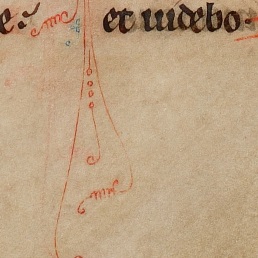 et uidebo·